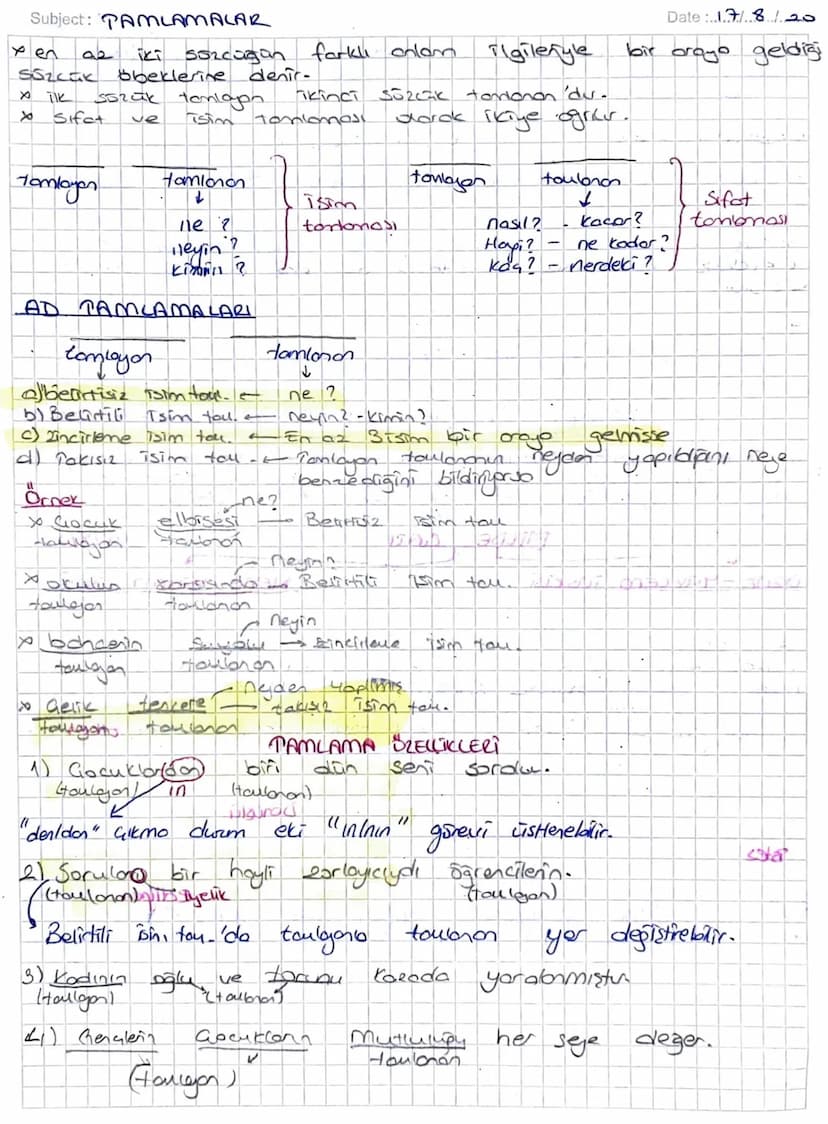 Subject: TAMLAMALAR Date: 17/8/20
× en az iki sözcüğün farklı anlam ilgileriyle bir araya geldiği
sözcük öbeklerine denir.
× ilk sözcük tamlayan ikinci sözcük tamlanan'dır.
× Sıfat ve isim tamlaması olarak ikiye ayrılır.
tamlayan tamlanan tamlayan tamlanan
isim tamlaması Sıfat tamlaması
ne ? nasıl? - kaçar?
neyin ? Hangi? - ne kadar?
kimin ? kaç? - nerdeki?
AD TAMLAMALARI
tamlayan tamlanan
a) belirtisiz isim tam. ← ne ?
b) Belirtili isim tam. ← neyin? - kimin?
c) zincirleme isim tam. ← En az 3 isim bir araya gelmişse
d) Takısız isim tam. ← Tamlayan tamlananın neyden yapıldığını neye
benzediğini bildiriyorsa
Örnek
ne?
× Çocuk elbisesi → Belirtisiz isim tam
tamlayan tamlanan
Neyin?
× okulun karşısında → Belirtili isim tam.
tamlayan tamlanan
Neyin
× bahçenin → zincirleme isim tam.
tamlayan tamlanan
Neyden yapılmış
× Çelik tencere → takısız isim tam.
tamlayan tamlanan
TAMLAMA ÖZELLİKLERİ
1) Çocuklardan biri dün seni sordu.
(tamlayan) ın (tamlanan)
"den/dan" çıkma durum eki "ın/nın" görevi üstlenebilir.
2) Soruları bir hayli zorlayıcıydı öğrencilerin.
(tamlanan) iyelik (tamlayan)
Belirtili isim tam.'da tamlayanla tamlanan yer değiştirebilir.
3) Kadının oğlu ve torunu kazada yaralanmıştır
(tamlayan) (tamlanan)
4) Gençlerin Çocukların Mutluluğu her şeye değer.
(tamlayan) tamlanan